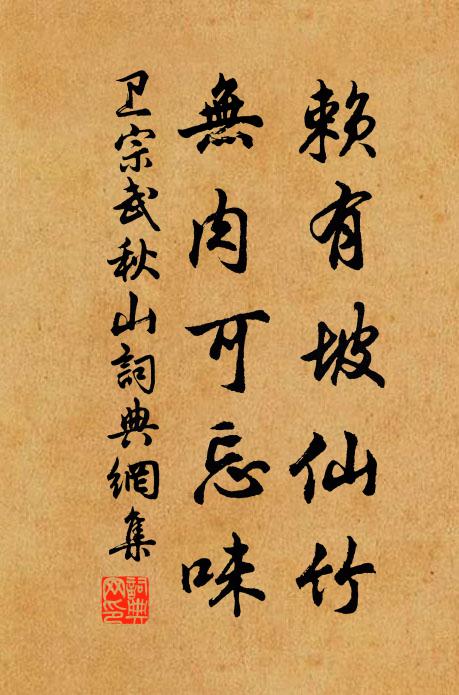 賴有坡仙竹
無肉可忘味
卫宗武秋山詞典網集
詞典網印